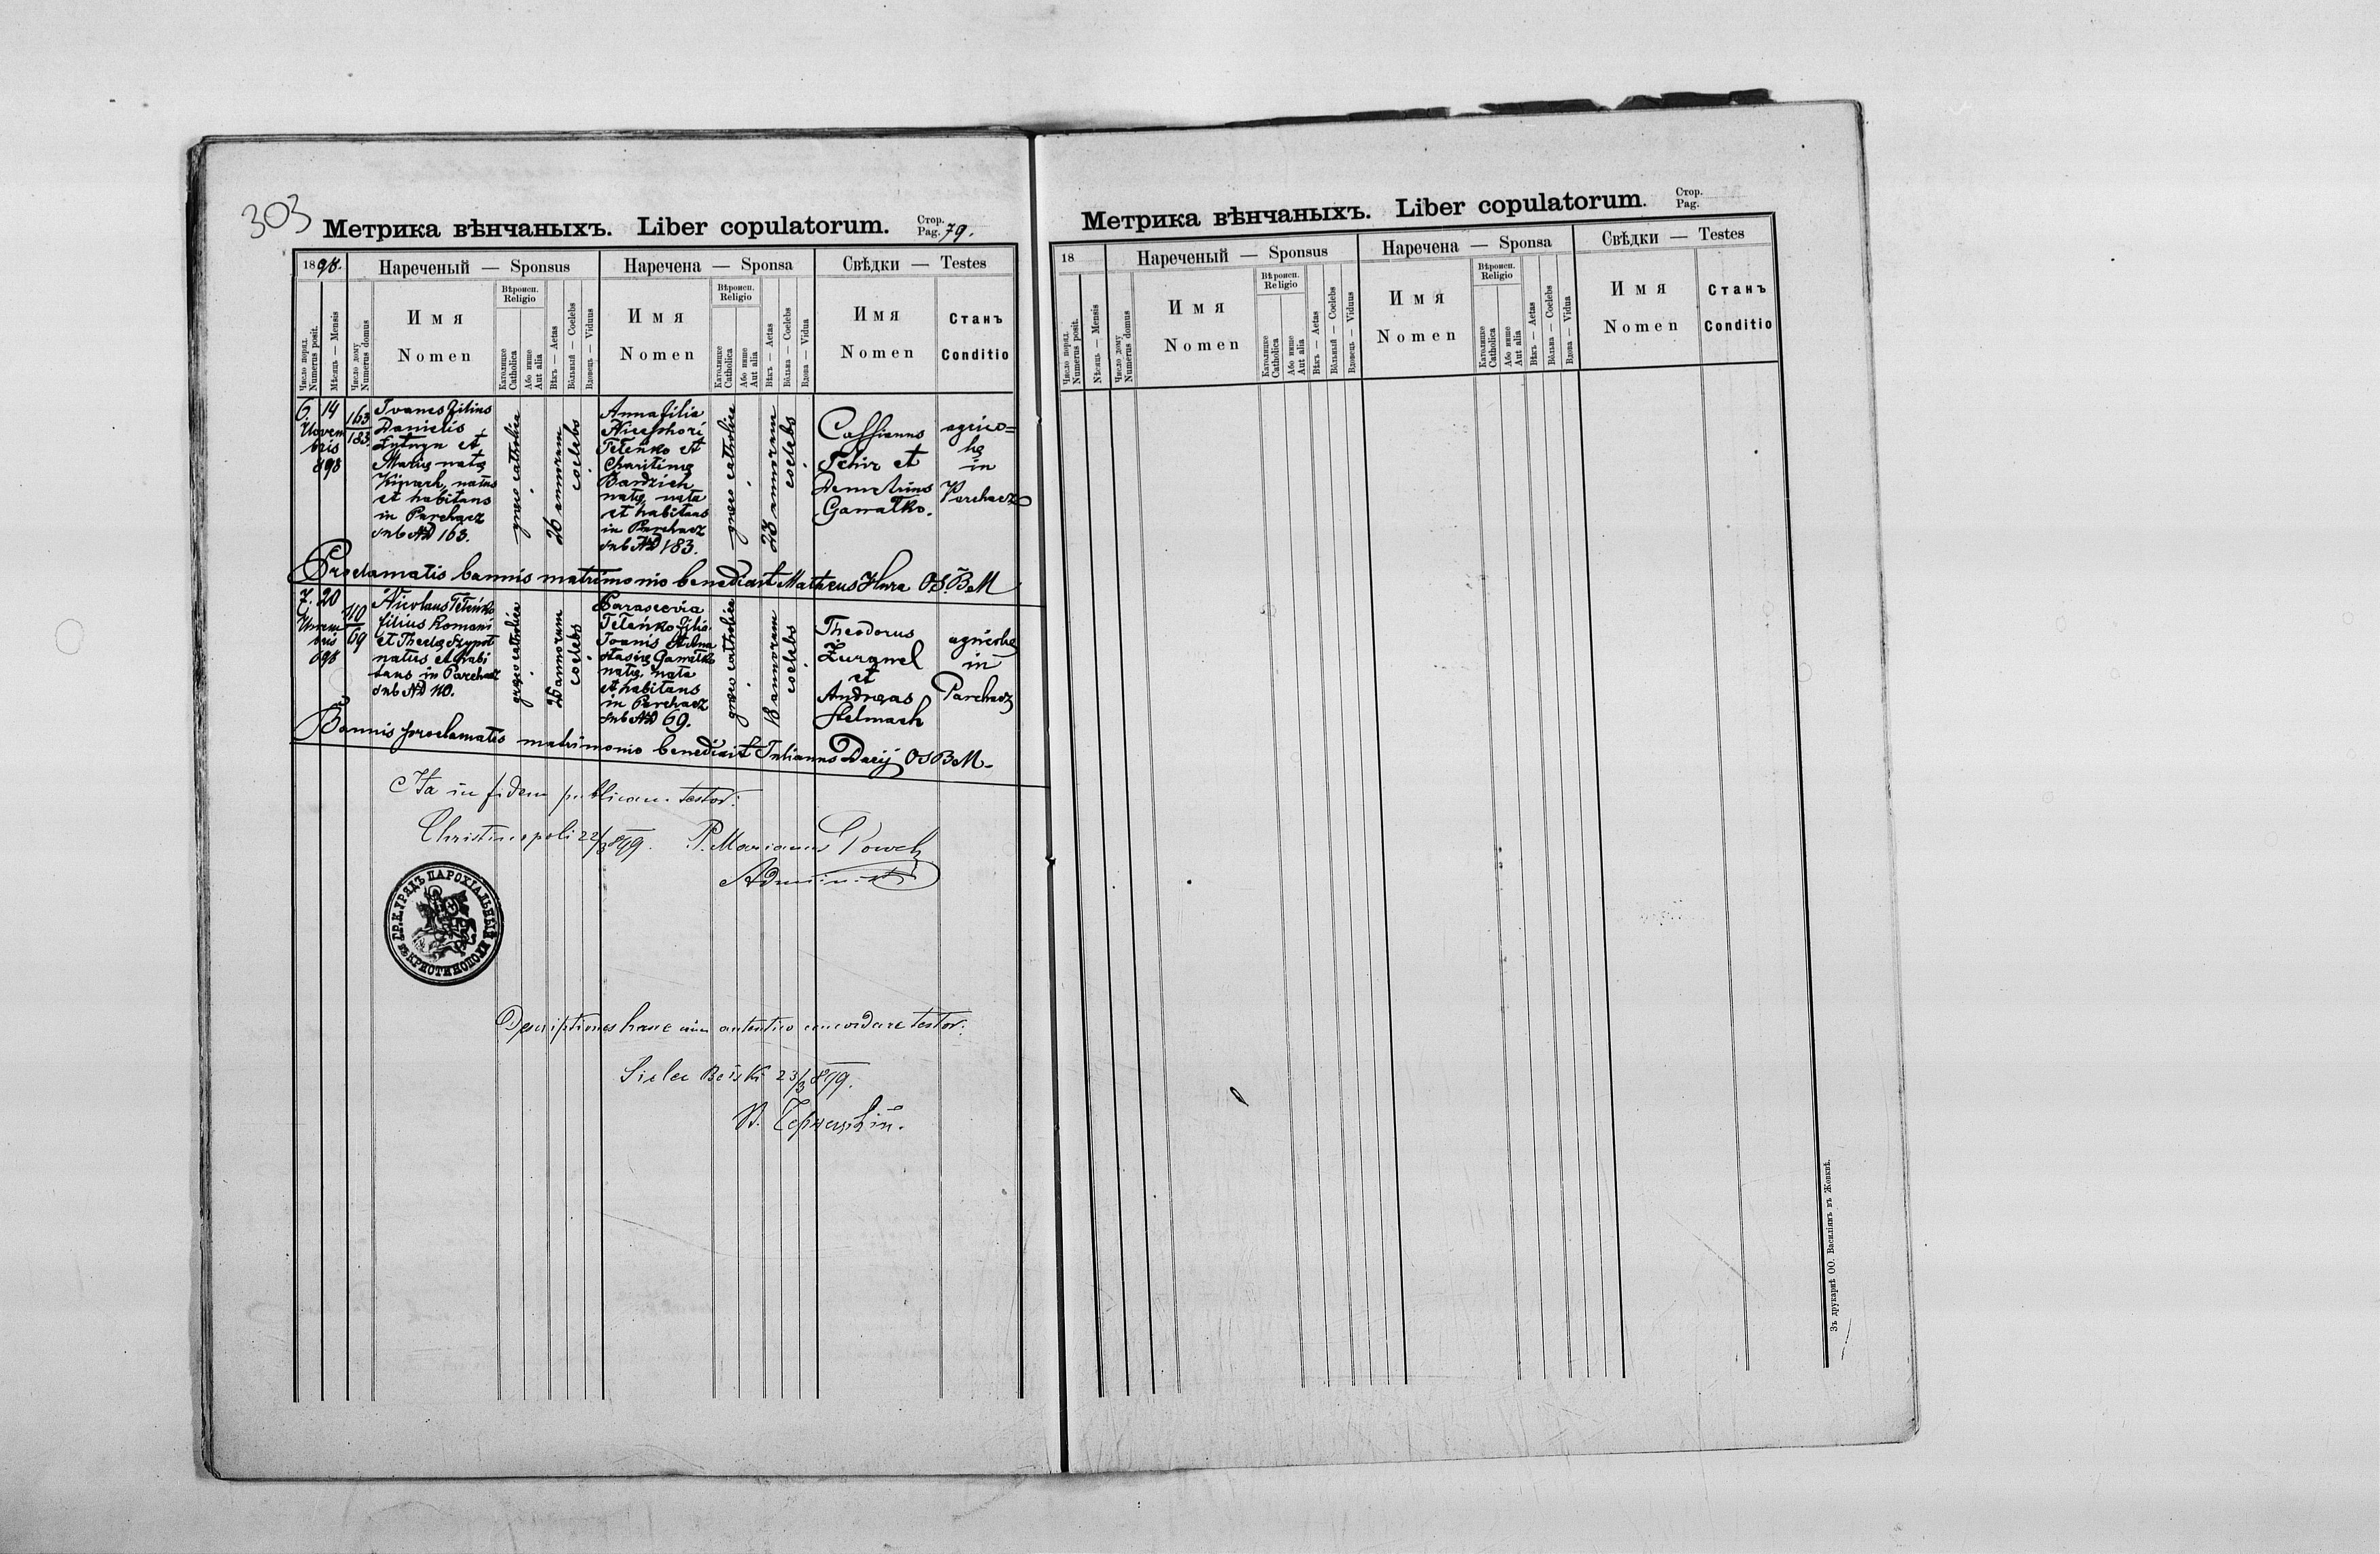 303
Метрика вѣнчаныхъ. Liber copulatorum. Стор. Pag. 79.
1898.
Нареченый — Sponsus
Наречена — Sponsa
Свѣдки — Testes
Число поряд. Numerus posit.
Мѣсяць — Mensis
Число дому Numerus domus
Имя
Nomen
Вѣроисп.
Religio
Католицке Catholica
Або инше Aut alia
Вѣкъ — Aetas
Вôльный — Coelebs
Вдовець — Viduus
Имя
Nomen
Вѣроисп.
Religio
Католицке Catholica
Або инше Aut alia
Вѣкъ — Aetas
Вôльна — Coelebs
Вдова — Vidua
Имя
Nomen
Станъ
Conditio
6. 14
Novem
bris
898
163
183.
Ioanes filius
Danielis
et
Marię natę
natus
et habitans
in Parchacz
sub No 163.
greco catholica
26 annorum
coelebs
Anna filia
Nicephori
Teleńko et
Charitinę
Bardzich
natę, nata
et habitans
in Parchacz
sub No 183.
greco catholica
23 annorum
coelebs
Cassianus
Fehir et
Demetrius
Gawałko.
agrico=
lę
in
Parchacz
Proclamatis bannis matrimonio benedixit Matheus Hura OSBM
7. 20
Novem
bris
898
110
69
Nicolaus Teleńko
filius Romani
et Theclę Szypot
natus et habi
tans in Parchacz
sub No 110.
greco catholica
25 annorum
coelebs
Parascevia
Teleńko filia
Ioanis et Ana
stasię Gawałko
natę, nata
et habitans
in Parchacz
sub No 69.
greco catholica
18 annorum
coelebs
Theodorus
Żurawel
et
Andreas
Stelmach
agricolę
in
Parchacz
Bannis proclamatis matrimonio benedixit Iulianus Dacij OSBM.
Ita in fidem publicam testor:
Christinopoli 22/3 899. P. Marianus Powch
Administr
ГР.К.УРЯДЪ ПАРОХІАЛЬНЫЙ
въ КРИСТИНОПОЛИ
Descriptiones hanc cum autentico concordare testor.
Sielec Bełski 23/3 899.
Метрика вѣнчаныхъ. Liber copulatorum. Стор. Pag.
18
Нареченый — Sponsus
Наречена — Sponsa
Свѣдки — Testes
Число поряд. Numerus posit.
Мѣсяць — Mensis
Число дому Numerus domus
Имя
Nomen
Вѣроисп.
Religio
Католицке Catholica
Або инше Aut alia
Вѣкъ — Aetas
Вôльный — Coelebs
Вдовець — Viduus
Имя
Nomen
Вѣроисп.
Religio
Католицке Catholica
Або инше Aut alia
Вѣкъ — Aetas
Вôльна — Coelebs
Вдова — Vidua
Имя
Nomen
Станъ
Conditio
Зъ друкарнѣ ОО. Василіянъ въ Жовквѣ.